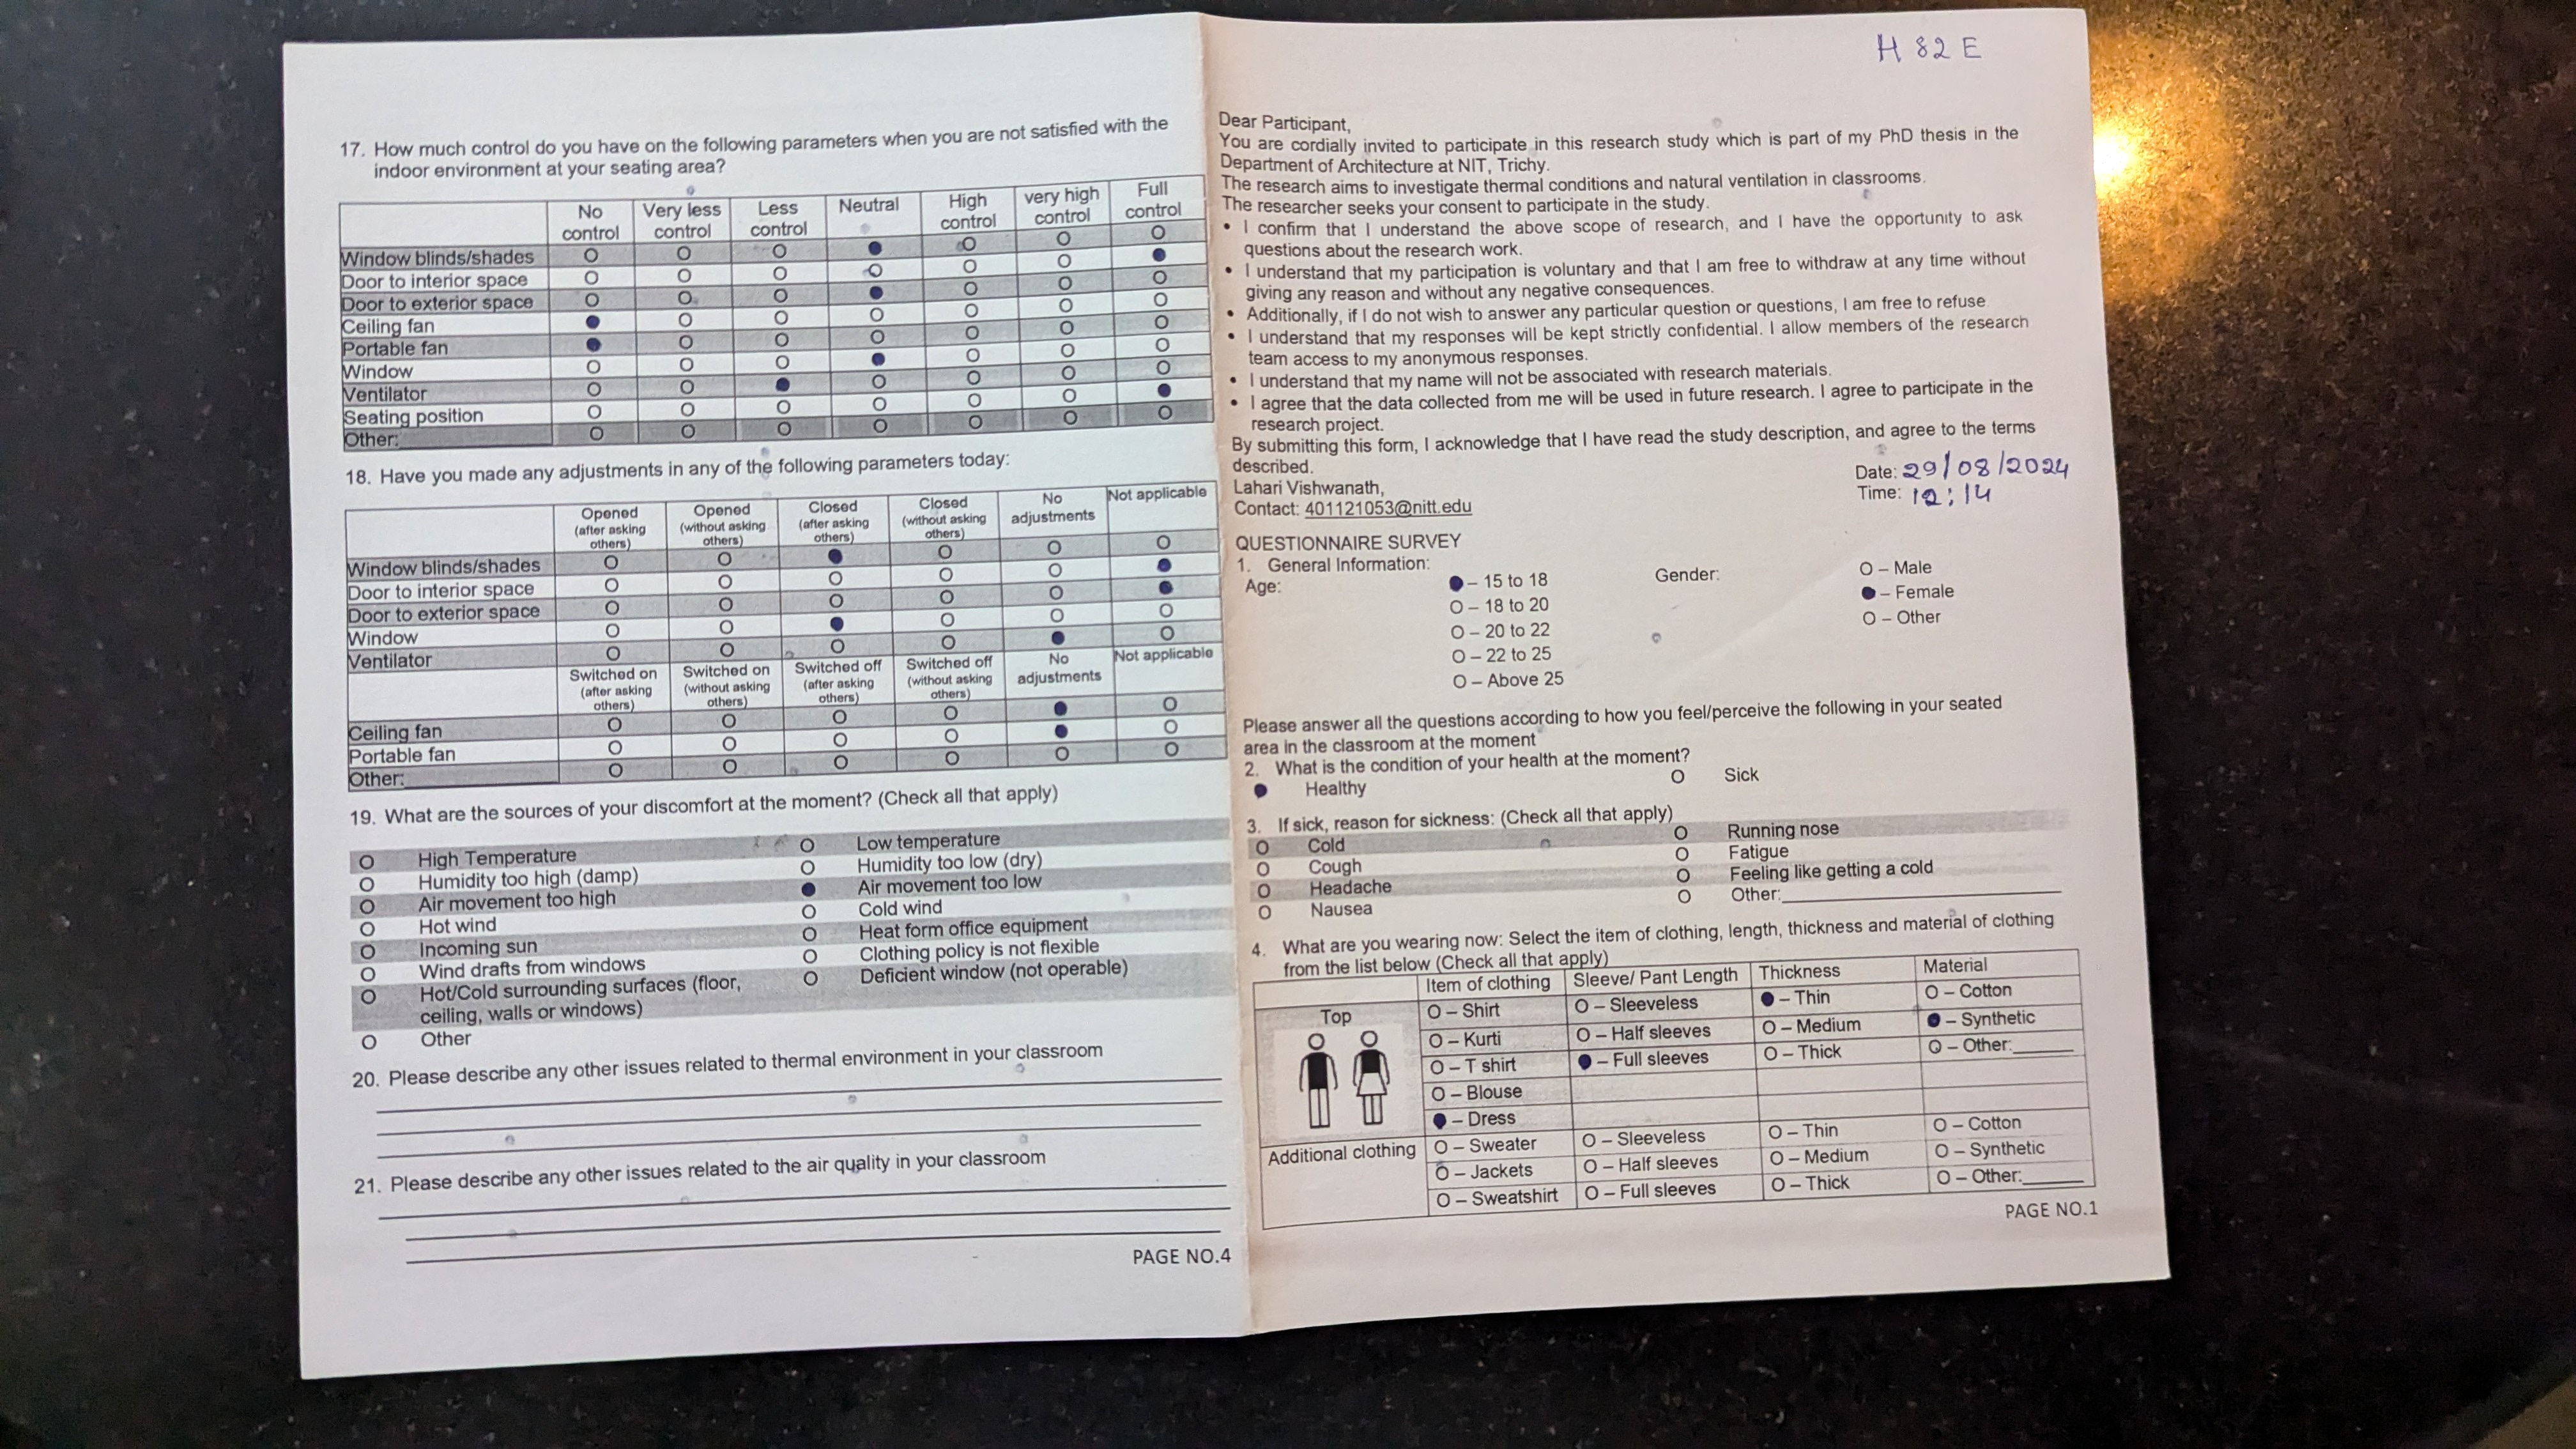 17. How much control do you have on the following parameters when you are not satisfied with the
indoor environment at your seating area?
No control Very less control Less control Neutral High control very high control Full control
Window blinds/shades O O O ● O O O
Door to interior space O O O O O O ●
Door to exterior space O O O ● O O O
Ceiling fan ● O O O O O O
Portable fan ● O O O O O O
Window O O O ● O O O
Ventilator O O ● O O O O
Seating position O O O O O O ●
Other: O O O O O O O
18. Have you made any adjustments in any of the following parameters today:
Opened (after asking others) Opened (without asking others) Closed (after asking others) Closed (without asking others) No adjustments Not applicable
Window blinds/shades O O ● O O O
Door to interior space O O O O O ●
Door to exterior space O O O O O ●
Window O O ● O O O
Ventilator O O O O ● O
Switched on (after asking others) Switched on (without asking others) Switched off (after asking others) Switched off (without asking others) No adjustments Not applicable
Ceiling fan O O O O ● O
Portable fan O O O O ● O
Other: O O O O O O
19. What are the sources of your discomfort at the moment? (Check all that apply)
O High Temperature O Low temperature
O Humidity too high (damp) O Humidity too low (dry)
O Air movement too high ● Air movement too low
O Hot wind O Cold wind
O Incoming sun O Heat form office equipment
O Wind drafts from windows O Clothing policy is not flexible
O Hot/Cold surrounding surfaces (floor, O Deficient window (not operable)
ceiling, walls or windows)
O Other
20. Please describe any other issues related to thermal environment in your classroom
21. Please describe any other issues related to the air quality in your classroom
PAGE NO.4
H 82 E
Dear Participant,
You are cordially invited to participate in this research study which is part of my PhD thesis in the
Department of Architecture at NIT, Trichy.
The research aims to investigate thermal conditions and natural ventilation in classrooms.
The researcher seeks your consent to participate in the study.
• I confirm that I understand the above scope of research, and I have the opportunity to ask
questions about the research work.
• I understand that my participation is voluntary and that I am free to withdraw at any time without
giving any reason and without any negative consequences.
• Additionally, if I do not wish to answer any particular question or questions, I am free to refuse
• I understand that my responses will be kept strictly confidential. I allow members of the research
team access to my anonymous responses.
• I understand that my name will not be associated with research materials.
• I agree that the data collected from me will be used in future research. I agree to participate in the
research project.
By submitting this form, I acknowledge that I have read the study description, and agree to the terms
described.
Lahari Vishwanath,
Contact: 401121053@nitt.edu
Date: 29/08/2024
Time: 12:14
QUESTIONNAIRE SURVEY
1. General Information:
Age: ● – 15 to 18 Gender: O – Male
O – 18 to 20 ● – Female
O – 20 to 22 O – Other
O – 22 to 25
O – Above 25
Please answer all the questions according to how you feel/perceive the following in your seated
area in the classroom at the moment
2. What is the condition of your health at the moment?
● Healthy O Sick
3. If sick, reason for sickness: (Check all that apply)
O Cold O Running nose
O Cough O Fatigue
O Headache O Feeling like getting a cold
O Nausea O Other:
4. What are you wearing now: Select the item of clothing, length, thickness and material of clothing
from the list below (Check all that apply)
Item of clothing Sleeve/ Pant Length Thickness Material
Top O – Shirt O – Sleeveless ● – Thin O – Cotton
O – Kurti O – Half sleeves O – Medium ● – Synthetic
O – T shirt ● – Full sleeves O – Thick O – Other:
O – Blouse
● – Dress
Additional clothing O – Sweater O – Sleeveless O – Thin O – Cotton
O – Jackets O – Half sleeves O – Medium O – Synthetic
O – Sweatshirt O – Full sleeves O – Thick O – Other:
PAGE NO.1